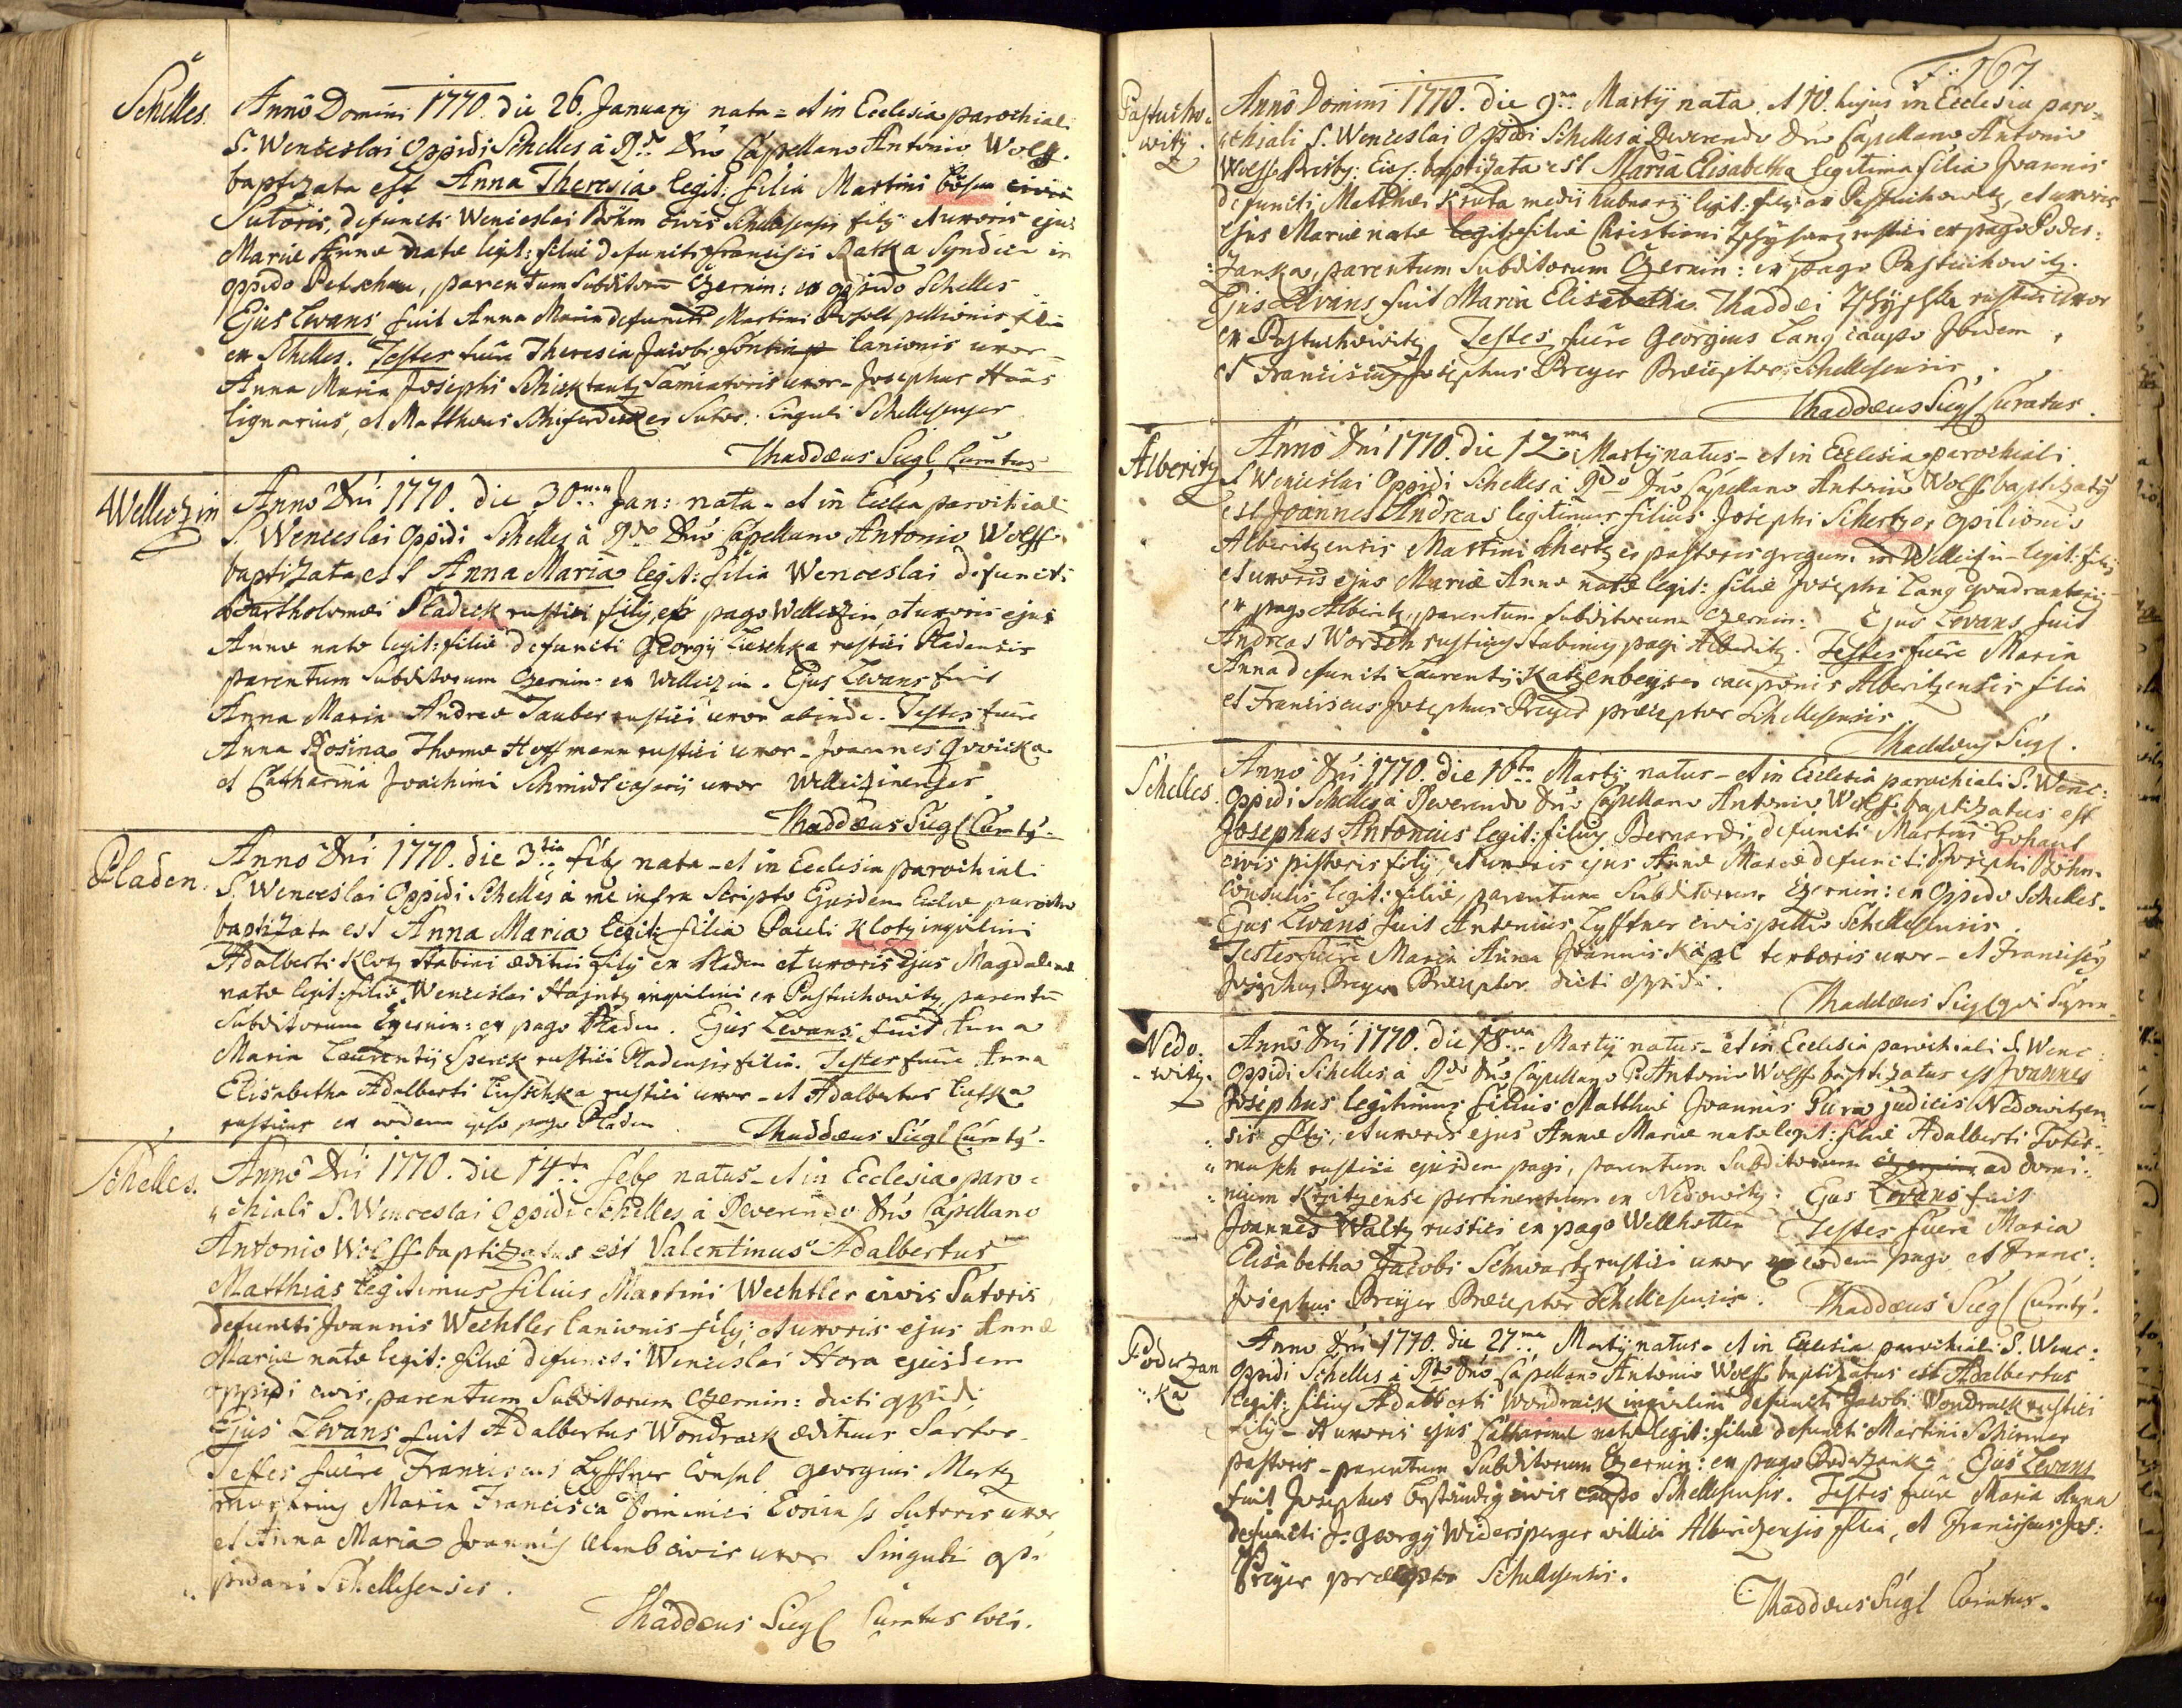 Schelles.
Anno Domini 1770. die 26. January nata = et in Ecclesia parochiali
S. Wenceslai Oppidi Schelles à Rdo Dno Capellano Antonio Wolff.
baptizata est Anna Theresia legit: filia Martini Böhm civis
Sutoris, defuncti Wenceslai Böhm civis Schellesensis filij et uxoris ejus
Mariæ Annæ natæ legit: filiæ defuncti Francisci Ratka Syndici in
oppido Petschau, parentum subditorum Czernin: ex oppido Schelles
Ejus Levans fuit Anna Maria defuncti Martini pellionis filia
ex Schelles. Testes fuere Theresia Jacobi lanionis uxor =
Anna Maria Josephi Schicktantz Samiatoris uxor - Josephus Haas
lignarius, et Mattheus Schiferdecker Sutor. singuli Schellesenses
Thaddæus Siegl Curatus
Welleczin
Anno Dni 1770. die 30ma Jan: nata - et in Ecclia parochiali
S. Wenceslai Oppidi Schelles à Rdo Dno Capellano Antonio Wolff
baptizata est Anna Maria legit: filia Wenceslai defuncti
Bartholomæi Sladeck rustici filij, ex pago Welleczin, et uxoris ejus
Annæ natæ legit: filiæ defuncti Georgij Lieschka rustici Pladensis
parentum subditorum Czernin: ex Welleczin. Ejus Levans fuit
Anna Maria Andreæ Tauber rustici uxor abinde. Testes fuere
Anna Rosina Thomæ Hoffmann rustici uxor - Joannes
et Catharina Joachimi Schmidl casarij uxor Welleczinenses
Thaddæus Siegl Curaty.
Pladen.
Anno Dni 1770. die 3tia feb nata - et in Ecclesia parochiali
S. Wenceslai Oppidi Schelles à me infra Scripto Ejusdem Ecclæ parocho
baptizata est Anna Maria legit: filia Pauli Klotz inquilini
Adalberti Klotz Stabini æditui filij ex Pladen et uxoris ejus Magdalenæ
natæ legit: filiæ Wenceslai Hajntz inquilini ex Pastuchowitz, parentu
Subditorum Czernin: ex pago Pladen. Ejus Levans fuit Anna
Maria Laurentij Sperck rustici Pladensis filia. Testes fuere Anna
Elisabetha Adalberti Lieschka rustici uxor - et Adalbertus
rusticus ex eodem ipso pago Pladen.
Thaddæus Siegl Curaty.
Schelles.
Anno Dni 1770. die 14ta feb natus - et in Ecclesia paro =
chiali S. Wenceslai Oppidi Schelles à Reverendo Dno Capellano
Antonio Wolff baptizatus est Valentinus Adalbertus
Matthias legitimus filius Martini Wechtler civis Sutoris
defuncti Joannis Wechtler lanionis filij; et uxoris ejus Annæ
Mariæ natæ legit: filiæ defuncti Wenceslai Hora ejusdem
oppidi civis, parentum Subditorum Czernin: dicti oppidi
Ejus Levans fuit Adalbertus Wondrack ædituus Sartor -
Testes fuere Franciscus Lyfftner Consul Georgius Mertz
murarius Maria Francisca Dominici Sutoris uxor
et Anna Maria Joannis civis uxor Singuli op =
pidani Schellesenses.
Thaddæus Siegl Curatus loci.
167
Pastucho =
witz.
Anno Domini 1770. die 9na Martij nata. et 10. hujus in Ecclesia paro =
chiali S. Wenceslai Oppidi Schelles à Reverendo Dno Capellano Antonio
Wolff baptizata est Maria Elisabetha legitima filia Joannis
defuncti Matthæi Kruta medij legit. filij ex Pastuchowitz, et uxoris
ejus Mariæ natæ legit: filiæ Christiani rustici ex pago Poders:
zanka, parentum Subditorum Czernin: ex pago Pastuchowitz.
Ejus Levans fuit Maria Elisabetha Thaddæi rustici uxor
ex Pastuchowitz. Testes fuere Georgius Lang caupo Ibidem,
et Franciscus Josephus Preyer Præceptor Schellesensis.
Thaddæus Siegl Curatus.
Alberitz
Anno Dni 1770. die 12ma Martij natus - et in Ecclesia parochiali
S. Wenceslai Oppidi Schelles à Rdo Dno Capellano Antonio Wolff baptizaty
est Joannes Andreas legitimus filius Josephi Schertzer opilionis
Alberitzensis Martini Schertzer pastoris gregum in Welleczin legit: filij
et uxoris ejus Mariæ Annæ natæ legit: filiæ Josephi Lang quadrantarij
ex pago Alberitz, parentum subditorum Czernin: Ejus Levans fuit
Andreas Worsch rusticus Stabinus pagi Alberitz. Testes fuere Maria
Anna defuncti Laurentij Katzenbeyser cauponis Alberitzensis filia
et Franciscus Josephus Preyer præceptor Schellesensis
Thaddæus Siegl.
Schelles.
Anno Dni 1770. die 16ta Martij natus - et in Ecclesia parochiali S. Wenc:
Oppidi Schelles à Reverendo Dno Capellano Antonio Wolff. baptizatus est
Josephus Antonius legit: filius Bernardi, defuncti Martini
civis pistoris filij, et uxoris ejus Annæ Mariæ defuncti Josephi Böhm
Consulis legit: filiæ, parentum Subditorum Czernin: ex Oppido Schelles.
Ejus Levans fuit Antonius Lyfftner civis pellio Schellesensis.
Testes fuere Maria Anna Joannis textoris uxor - et Franciscy
Josephus Preyer Præceptor dicti oppidi.
Thaddæus Siegl qui Supra.
Nedo:
- witz.
Anno Dni 1770. die 18va Martij natus - et in Ecclesia parochiali S. Wenc:
Oppidi Schelles à Rdo Dno Capellano P. Antonio Wolff baptizatus est Joannes
Josephus legitimus filius Matthæi Joannis judicis Nedowitzen
sis filij, et uxoris ejus Annæ Mariæ natæ legit: filiæ Adalberti
rustici ejusdem pagi, parentum Subditorum ad domi =
nium pertinentium ex Nedowitz: Ejus Levans fuit
Joannes Waltz rustici ex pago Wellhotten Testes fuere Maria
Elisabetha Jacobi Schwartz rustici uxor ex eodem pago et Franc:
Josephus Preyer Præceptor Schellesensis.
Thaddæus Siegl Curaty.
Poderzan
= ka
Anno Dni 1770. die 27ma Martij natus - et in Ecclesia parochiali S. Wenc:
Oppidi Schelles à Rdo Dno Capellano Antonio Wolff baptizatus est Adalbertus
legit: filius Adalberti Wondrack inquilini defuncti Jacobi Wondrack rustici
filij - et uxoris ejus Catharinæ natæ legit: filiæ defuncti Martini Schirmer
pastoris - parentum Subditorum Czernin: ex pago Poderzanka: Ejus Levans
fuit Josephus Beständig civis caupo Schellesensis. Testes fuere Maria Anna
defuncti Georgij Widersperger villici Alberitzensis filia, et Franciscus Jos:
Preyer præceptor Schellesensis.
Thaddæus Siegl Curatus.